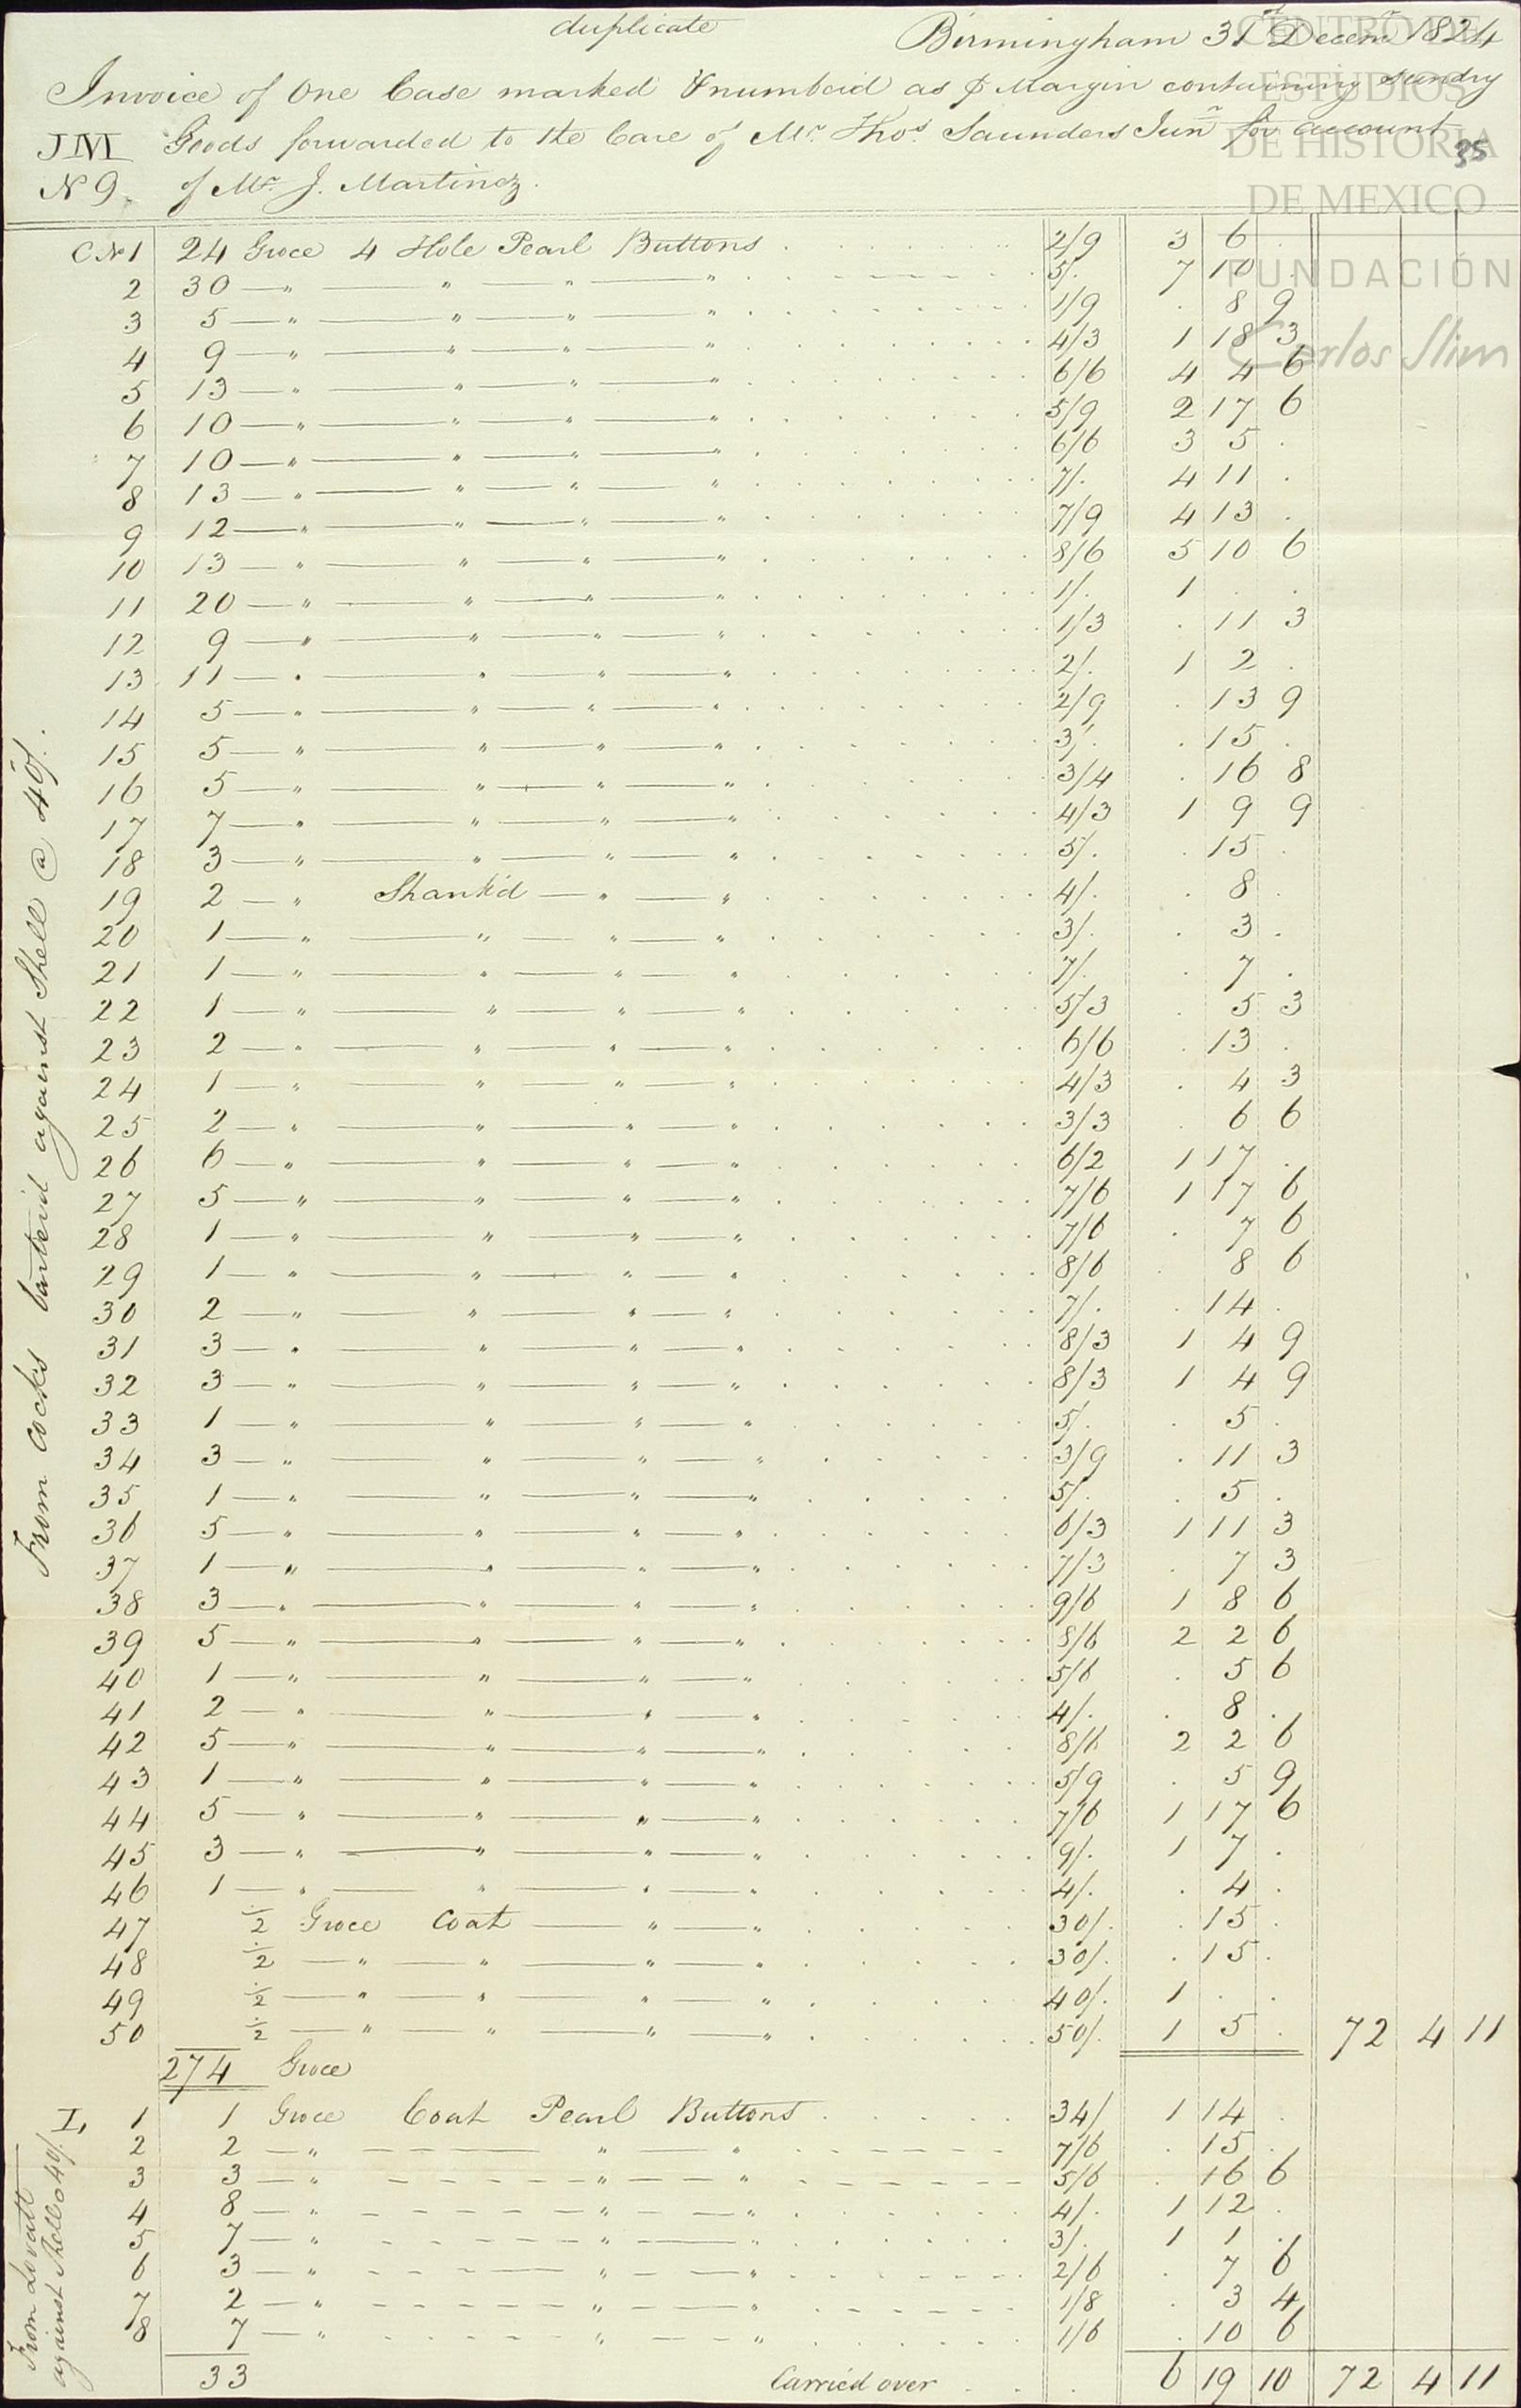 duplicate
Birmingham 31st Decemr 1824
Invoice of One Case marked & numberd as ⅌ Margin containing sundry
JM Goods forwarded to the Care of Mr. Thos. Saunders Junr for account
35
No 9. of Mr. J. Martinez.
C No 1 24 Groce 4 Hole Pearl Buttons 2/9 3 6 .
2 30 — " — " — " — " 5/. 7 10 .
3 5 — " — " — " — " 1/9 . 8 9
4 9 — " — " — " — " 4/3 1 18 3
5 13 — " — " — " — " 6/6 4 4 6
6 10 — " — " — " — " 5/9 2 17 6
7 10 — " — " — " — " 6/6 3 5 .
8 13 — " — " — " — " 7/. 4 11 .
9 12 — " — " — " — " 7/9 4 13 .
10 13 — " — " — " — " 8/6 5 10 6
11 20 — " — " — " — " 1/. 1 . .
12 9 — " — " — " — " 1/3 . 11 3
13 11 — " — " — " — " 2/. 1 2 .
14 5 — " — " — " — " 2/9 . 13 9
15 5 — " — " — " — " 3/. . 15 .
16 5 — " — " — " — " 3/4 . 16 8
17 7 — " — " — " — " 4/3 1 9 9
18 3 — " — " — " — " 5/. . 15 .
19 2 — " Shank'd — " — " 4/. . 8 .
20 1 — " — " — " — " 3/. . 3 .
21 1 — " — " — " — " 7/. . 7 .
22 1 — " — " — " — " 5/3 . 5 3
23 2 — " — " — " — " 6/6 . 13 .
24 1 — " — " — " — " 4/3 . 4 3
25 2 — " — " — " — " 3/3 . 6 6
26 6 — " — " — " — " 6/2 1 17 .
27 5 — " — " — " — " 7/6 1 17 6
28 1 — " — " — " — " 7/6 . 7 6
29 1 — " — " — " — " 8/6 . 8 6
30 2 — " — " — " — " 7/. . 14 .
31 3 — " — " — " — " 8/3 1 4 9
32 3 — " — " — " — " 8/3 1 4 9
33 1 — " — " — " — " 5/. . 5 .
34 3 — " — " — " — " 3/9 . 11 3
35 1 — " — " — " — " 5/. . 5 .
36 5 — " — " — " — " 6/3 1 11 3
37 1 — " — " — " — " 7/3 . 7 3
38 3 — " — " — " — " 9/6 1 8 6
39 5 — " — " — " — " 8/6 2 2 6
40 1 — " — " — " — " 5/6 . 5 6
41 2 — " — " — " — " 4/. . 8 .
42 5 — " — " — " — " 8/6 2 2 6
43 1 — " — " — " — " 5/9 . 5 9
44 5 — " — " — " — " 7/6 1 17 6
45 3 — " — " — " — " 9/. 1 7 .
46 1 — " — " — " — " 4/. . 4 .
47 ½ Groce Coat — " — " 30/. . 15 .
48 ½ — " — " — " — " 30/. . 15 .
49 ½ — " — " — " — " 40/. 1 . .
50 ½ — " — " — " — " 50/. 1 5 . 72 4 11
274 Groce
From Cocks barter'd against Shell @ 40/.
L 1 1 Groce Coat Pearl Buttons 34/ 1 14 .
2 2 — " — " — " 7/6 . 15 .
3 3 — " — " — " 5/6 . 16 6
4 8 — " — " — " 4/. 1 12 .
5 7 — " — " — " 3/. 1 1 .
6 3 — " — " — " 2/6 . 7 6
7 2 — " — " — " 1/8 . 3 4
8 7 — " — " — " 1/6 . 10 6
From Lovatt
against Shell @ 40/.
33 Carried over 6 19 10 72 4 11
CENTRO DE
ESTUDIOS
DE HISTORIA
DE MEXICO
FUNDACIÓN
Carlos Slim